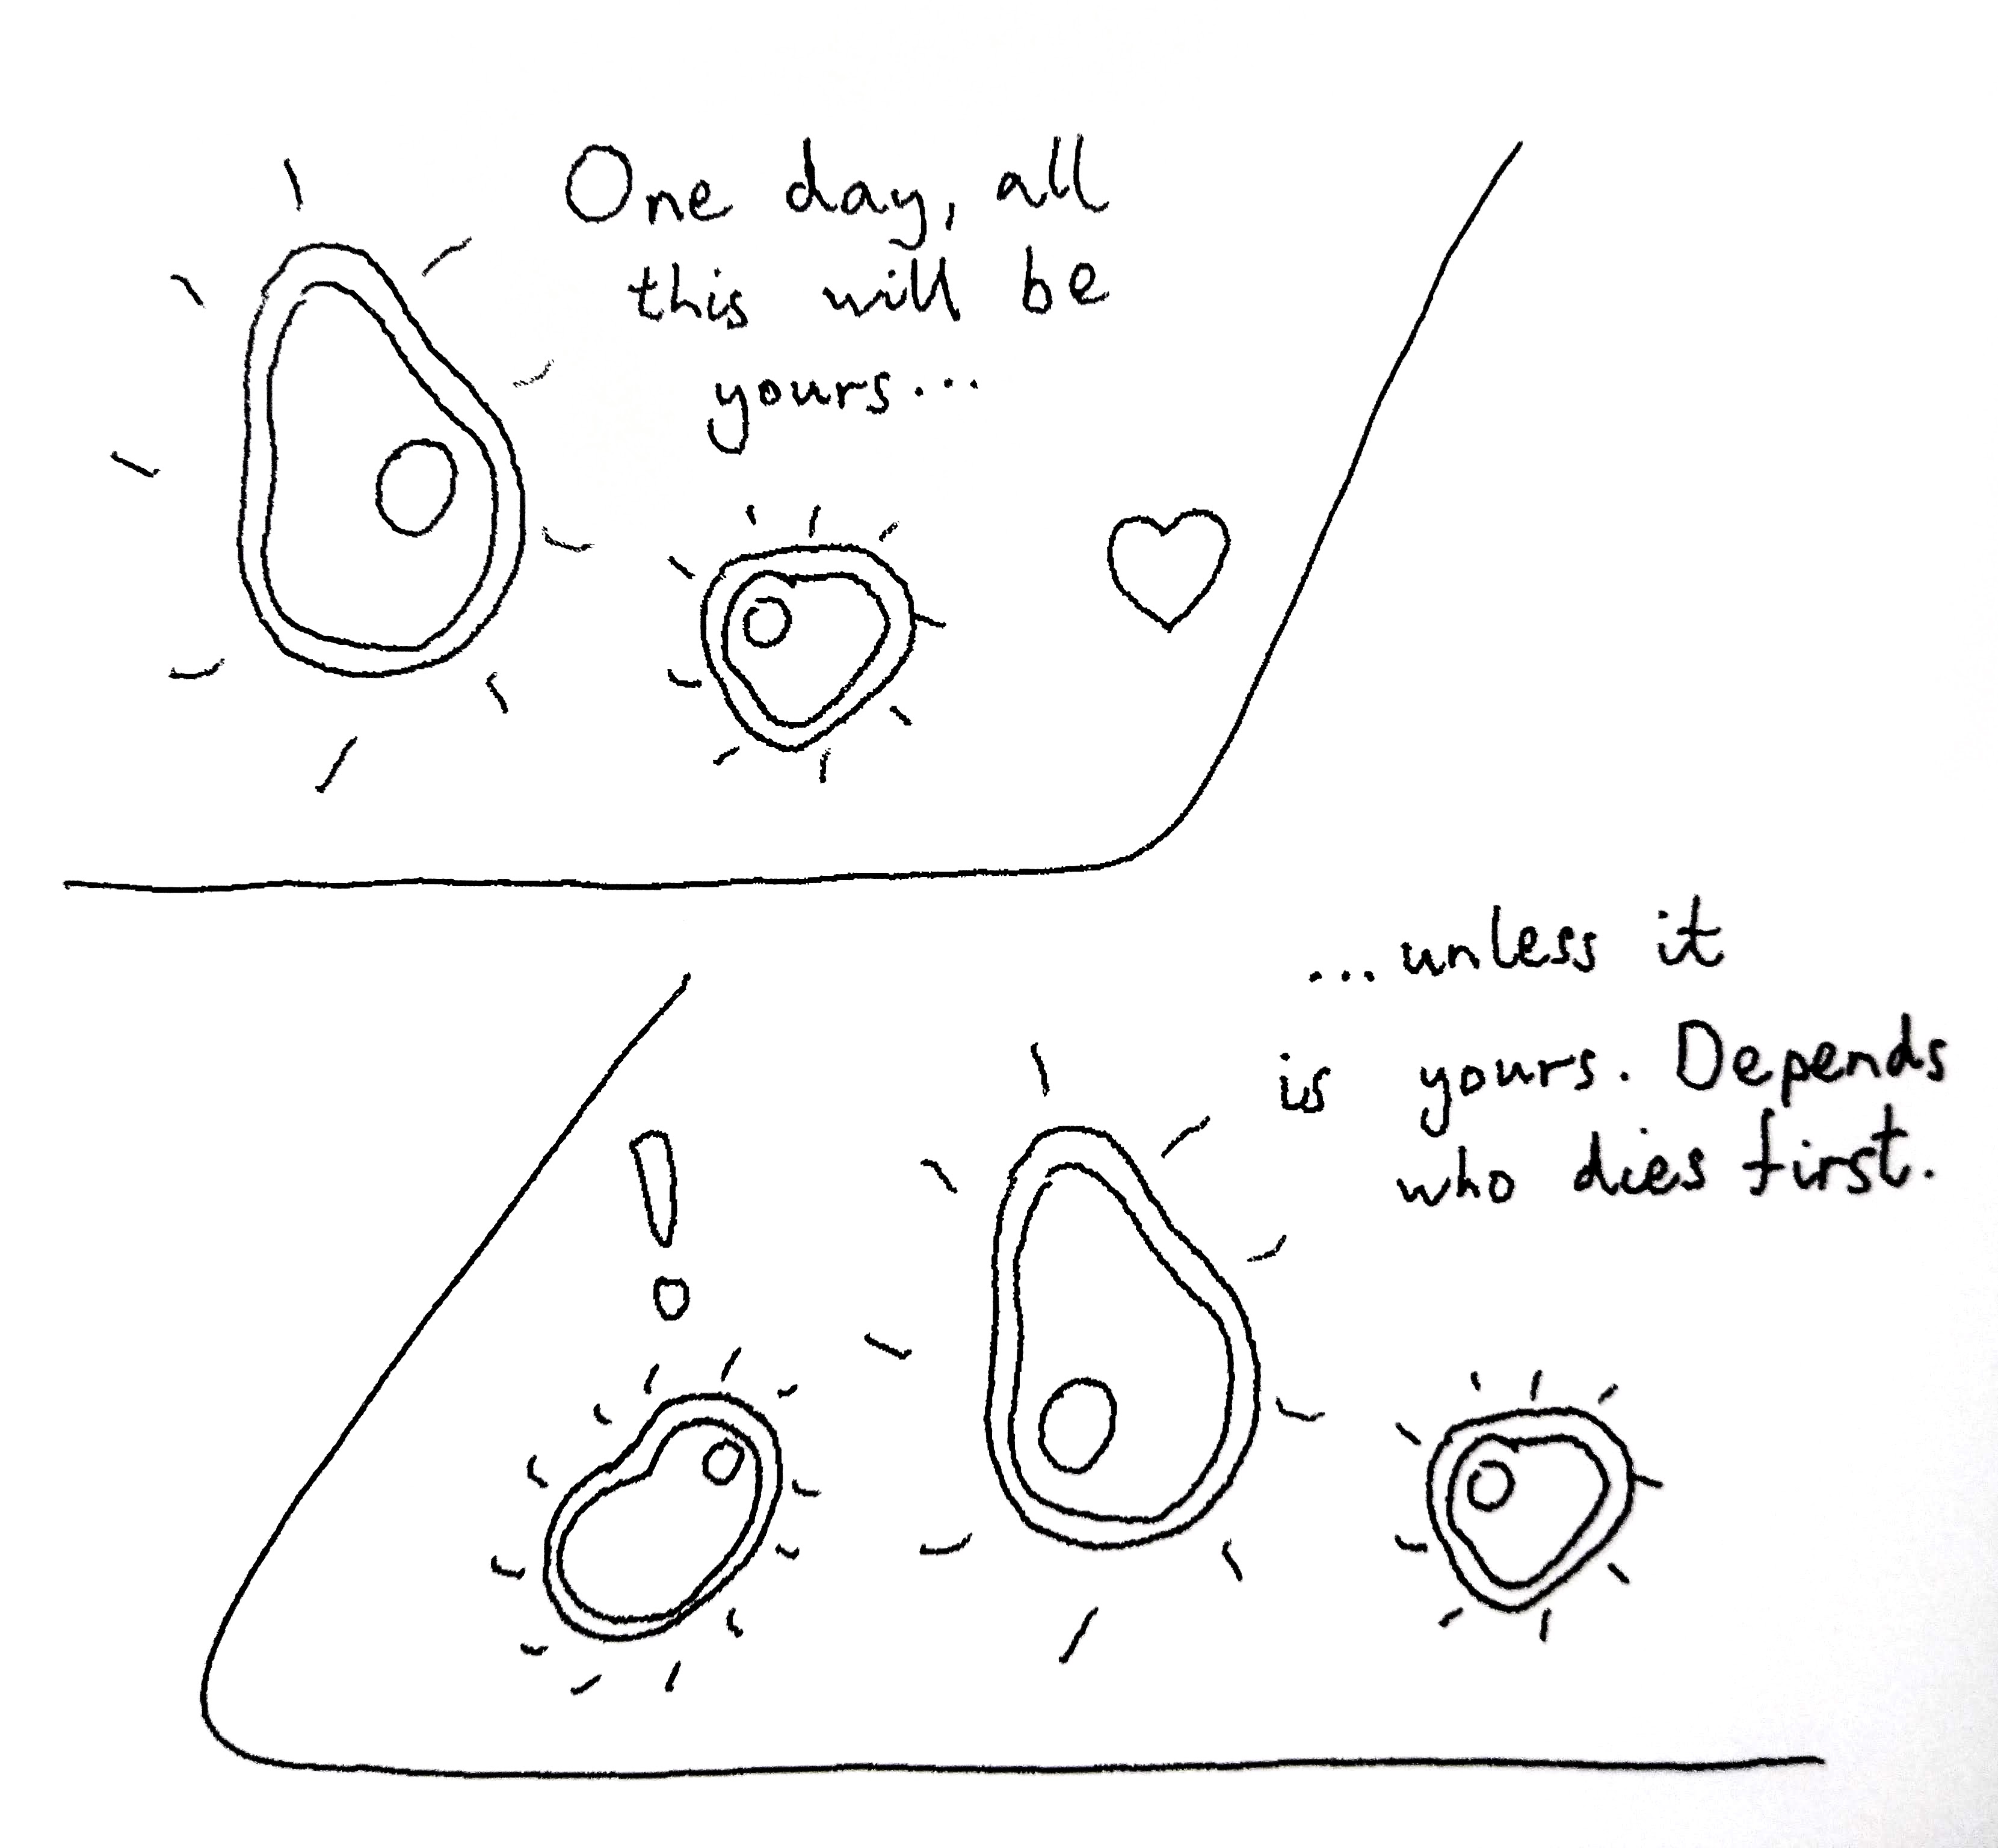 One day, all
this will be
yours...
...unless it
is yours. Depends
who dies first.